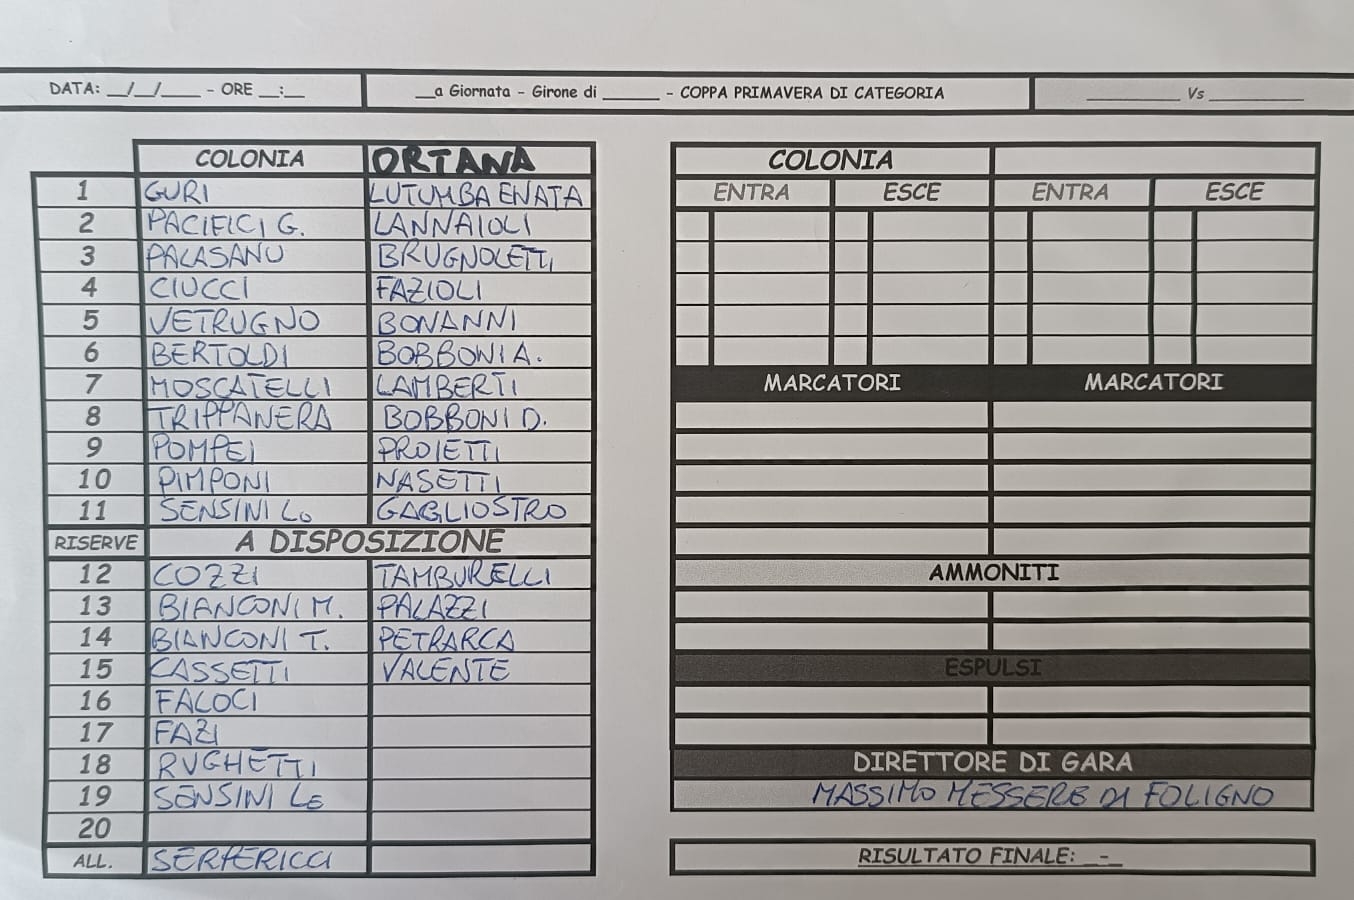 DATA: __/__/____ - ORE __:__ __a Giornata - Girone di ______ - COPPA PRIMAVERA DI CATEGORIA __________ Vs __________
COLONIA ORTANA
1 GURI LUTUMBA ENATA
2 PACIFICI G. LANNAIOLI
3 PALASANU BRUGNOLETTI
4 CIUCCI FAZIOLI
5 VETRUGNO BONANNI
6 BERTOLDI BOBBONI A.
7 MOSCATELLI LAMBERTI
8 TRIPPANERA BOBBONI D.
9 POMPEI PROIETTI
10 PIMPONI NASETTI
11 SENSINI Lo GAGLIOSTRO
RISERVE A DISPOSIZIONE
12 COZZI TAMBURELLI
13 BIANCONI M. PALAZZI
14 BIANCONI T. PETRARCA
15 CASSETTI VALENTE
16 FALOCI
17 FAZI
18 RUGHETTI
19 SENSINI LE
20
ALL. SERPERICCI
COLONIA
ENTRA ESCE ENTRA ESCE
MARCATORI MARCATORI
AMMONITI
ESPULSI
DIRETTORE DI GARA
MASSIMO MESSERE DI FOLIGNO
RISULTATO FINALE: __-__